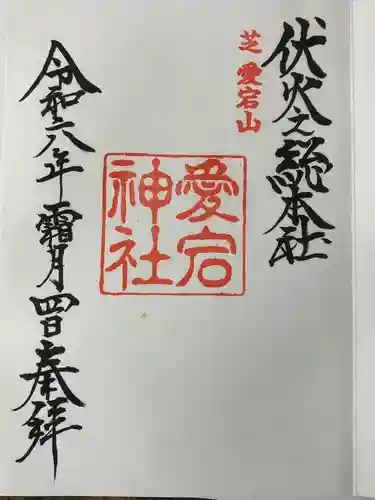 伏火之総本社
芝 愛宕山
愛宕
神社
令和六年 霜月四日 奉拝